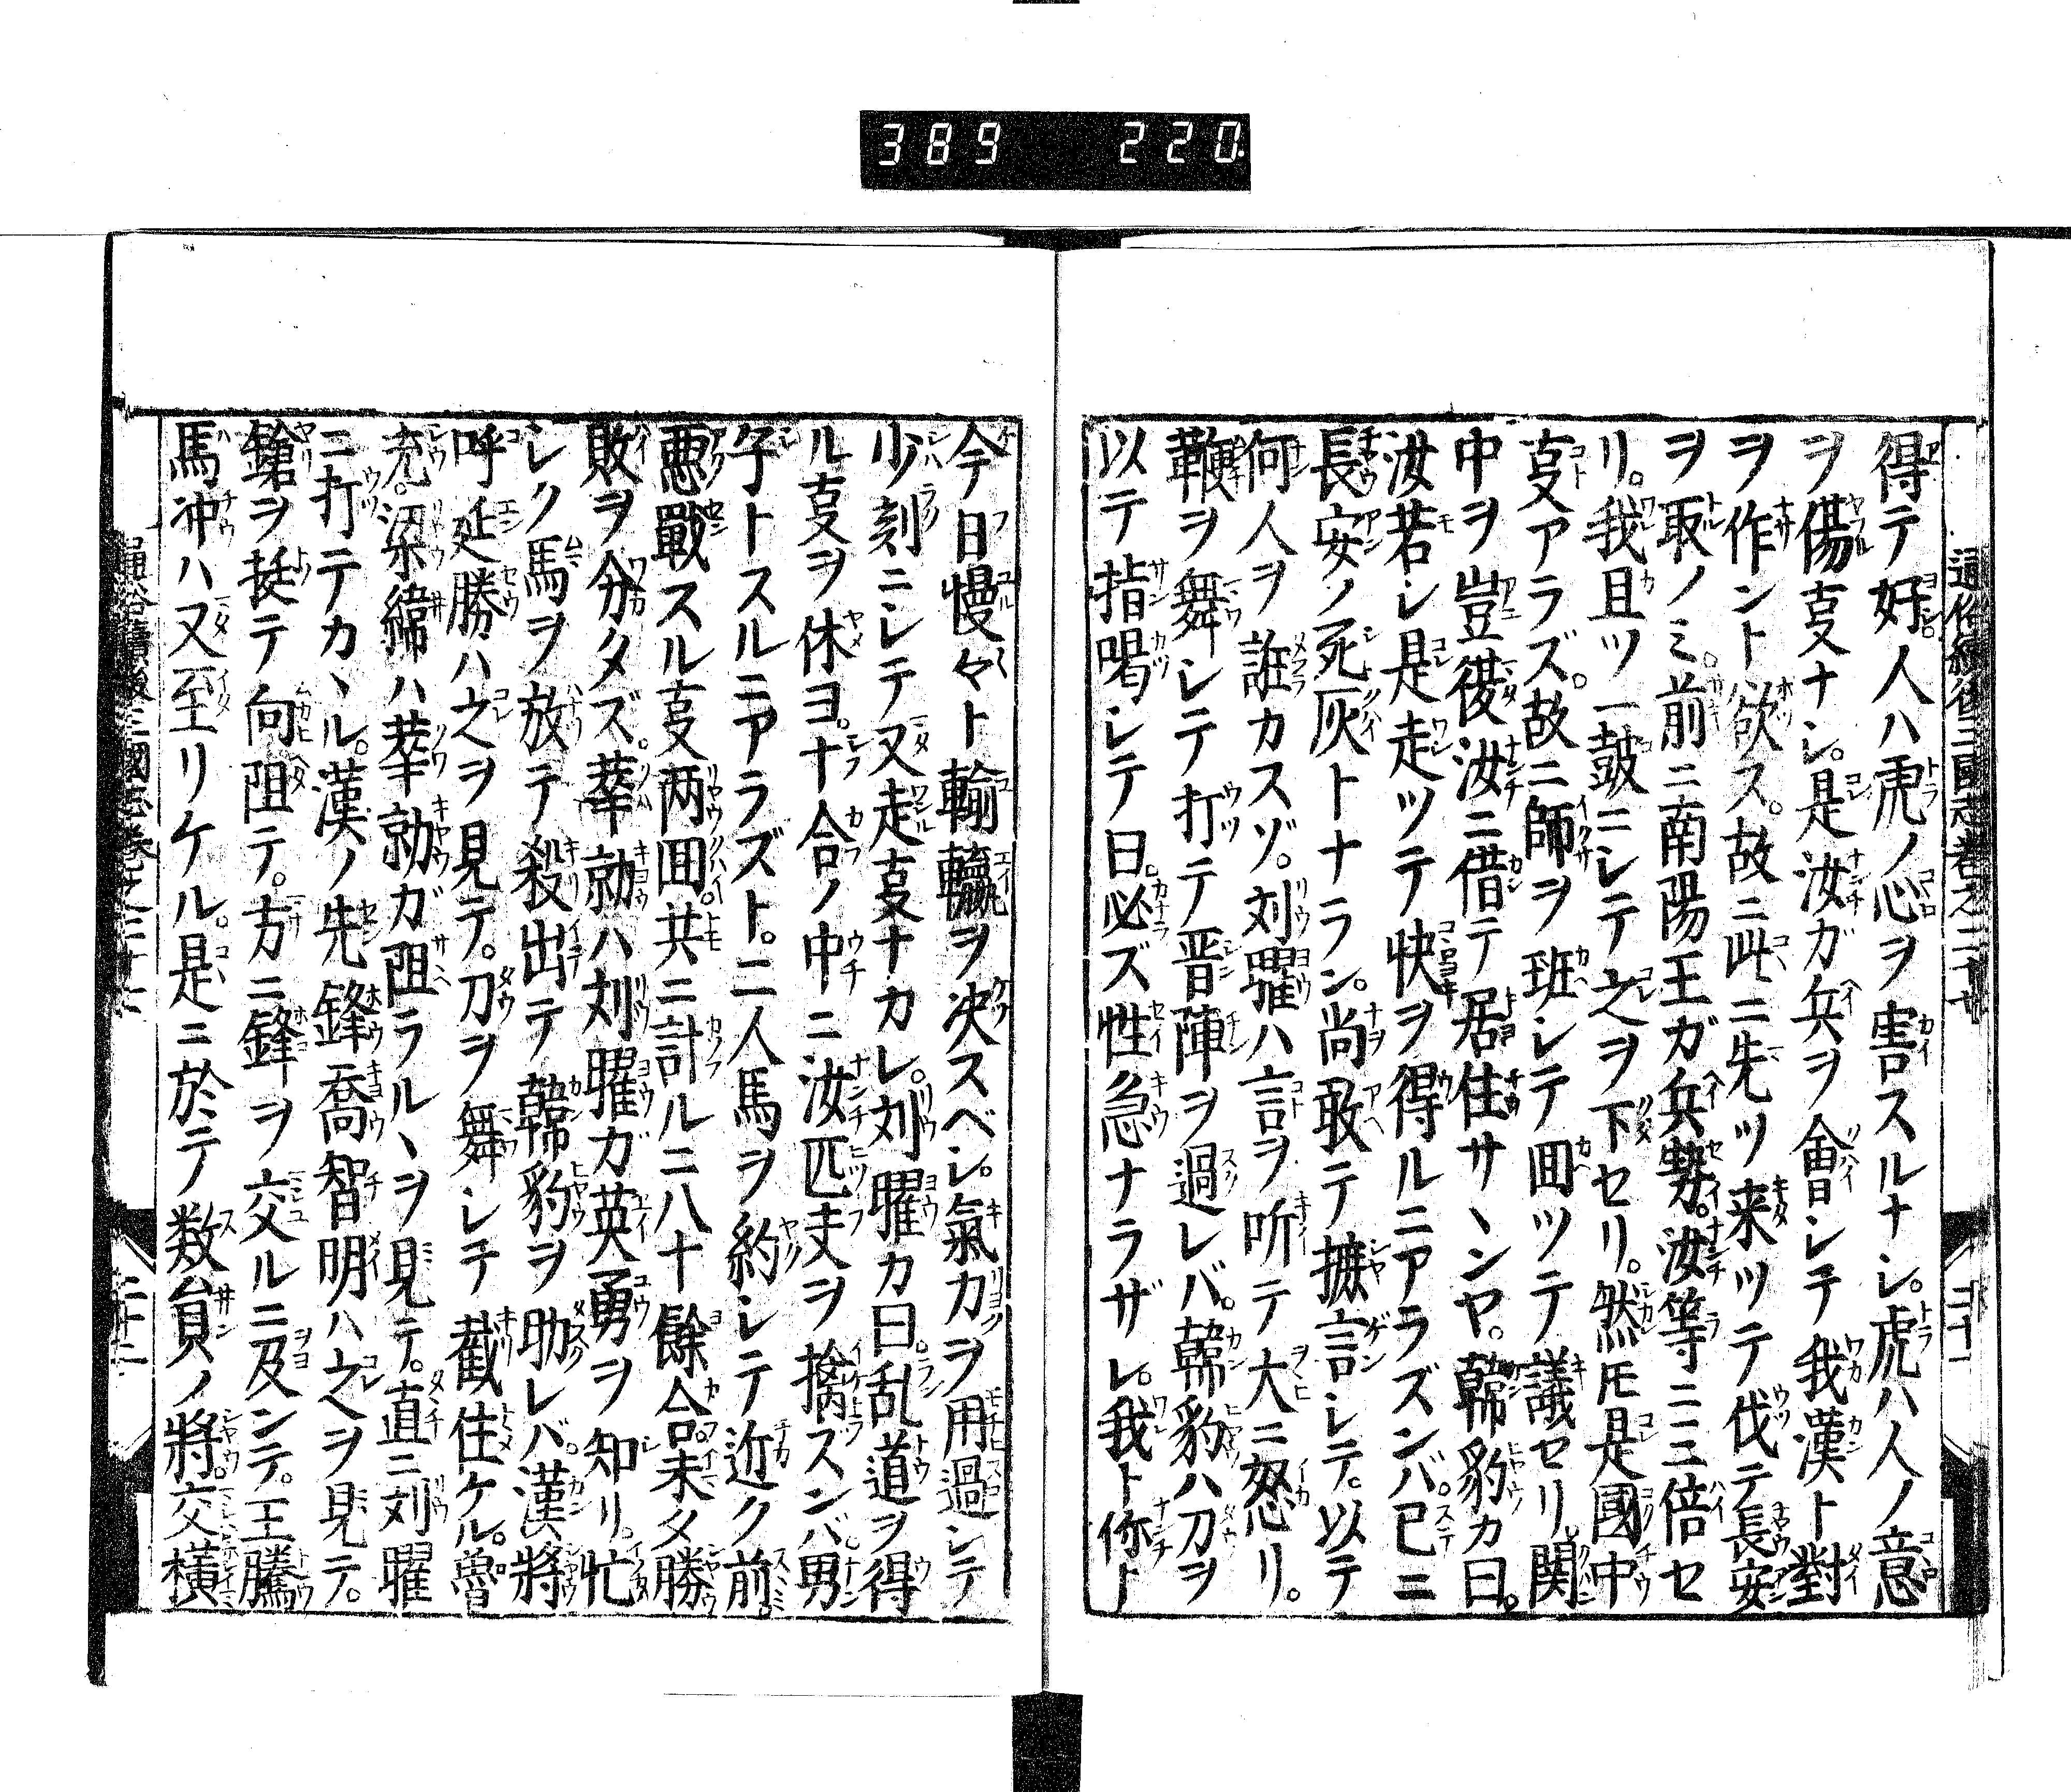 389 220
得テ好人ハ虎ノ心ヲ害スルナシ。虎ハ人ノ意
ヲ傷ル叓ナシ。是汝ガ兵ヲ會シテ我漢ト對
ヲ作ント欲ス。故ニ此ニ先ツ来ツテ伐テ長安
ヲ取ノミ。前ニ南陽王ガ兵勢。汝等ニ三倍セ
リ。我且ツ一鼓ニシテ之ヲ下セリ。然モ是國中
叓アラズ。故ニ師ヲ班シテ回ツテ議セリ。関
中ヲ豈復汝ニ借テ居住サヽンヤ。韓豹カ曰。
汝若シ是走ツテ快ヲ得ルニアラズンバ。已ニ
長安ノ死灰トナラン。尚敢テ摭言シテ。以テ
何人ヲ誑カスゾ。刘曜ハ言ヲ听テ大ニ怒リ。
鞭ヲ舞シテ打テ晋陣ヲ過レバ。韓豹ハ刀ヲ
以テ指喝シテ曰。必ズ性急ナラザレ。我ト你ト
今日慢々ト輸贏ヲ决スベシ。氣力ヲ用過シテ
少刻ニシテ又走叓ナカレ。刘曜カ曰。乱道ヲ得
ル叓ヲ休ヨ。十合ノ中ニ汝匹夫ヲ擒スンバ。男
子トスルニアラズト。二人馬ヲ約シテ近ク前。
悪戰スル叓两回。共ニ計ルニ八十餘合。未タ勝
敗ヲ分タズ。莘勍ハ刘曜ガ英勇ヲ知リ。忙
シク馬ヲ放テ殺出テ韓豹ヲ助レバ。漢將
呼延勝ハ之ヲ見テ。刀ヲ舞シテ截住ケル。魯
充。梁緯ハ莘勍ガ阻ラルヽヲ見テ。直ニ刘曜
ニ打テカヽル。漢ノ先鋒喬智明ハ之ヲ見テ。
鎗ヲ挺テ向阻テ。方ニ鋒ヲ交ルニ及ンテ。王騰
馬冲ハ又至リケル。是ニ於テ数員ノ將。交横